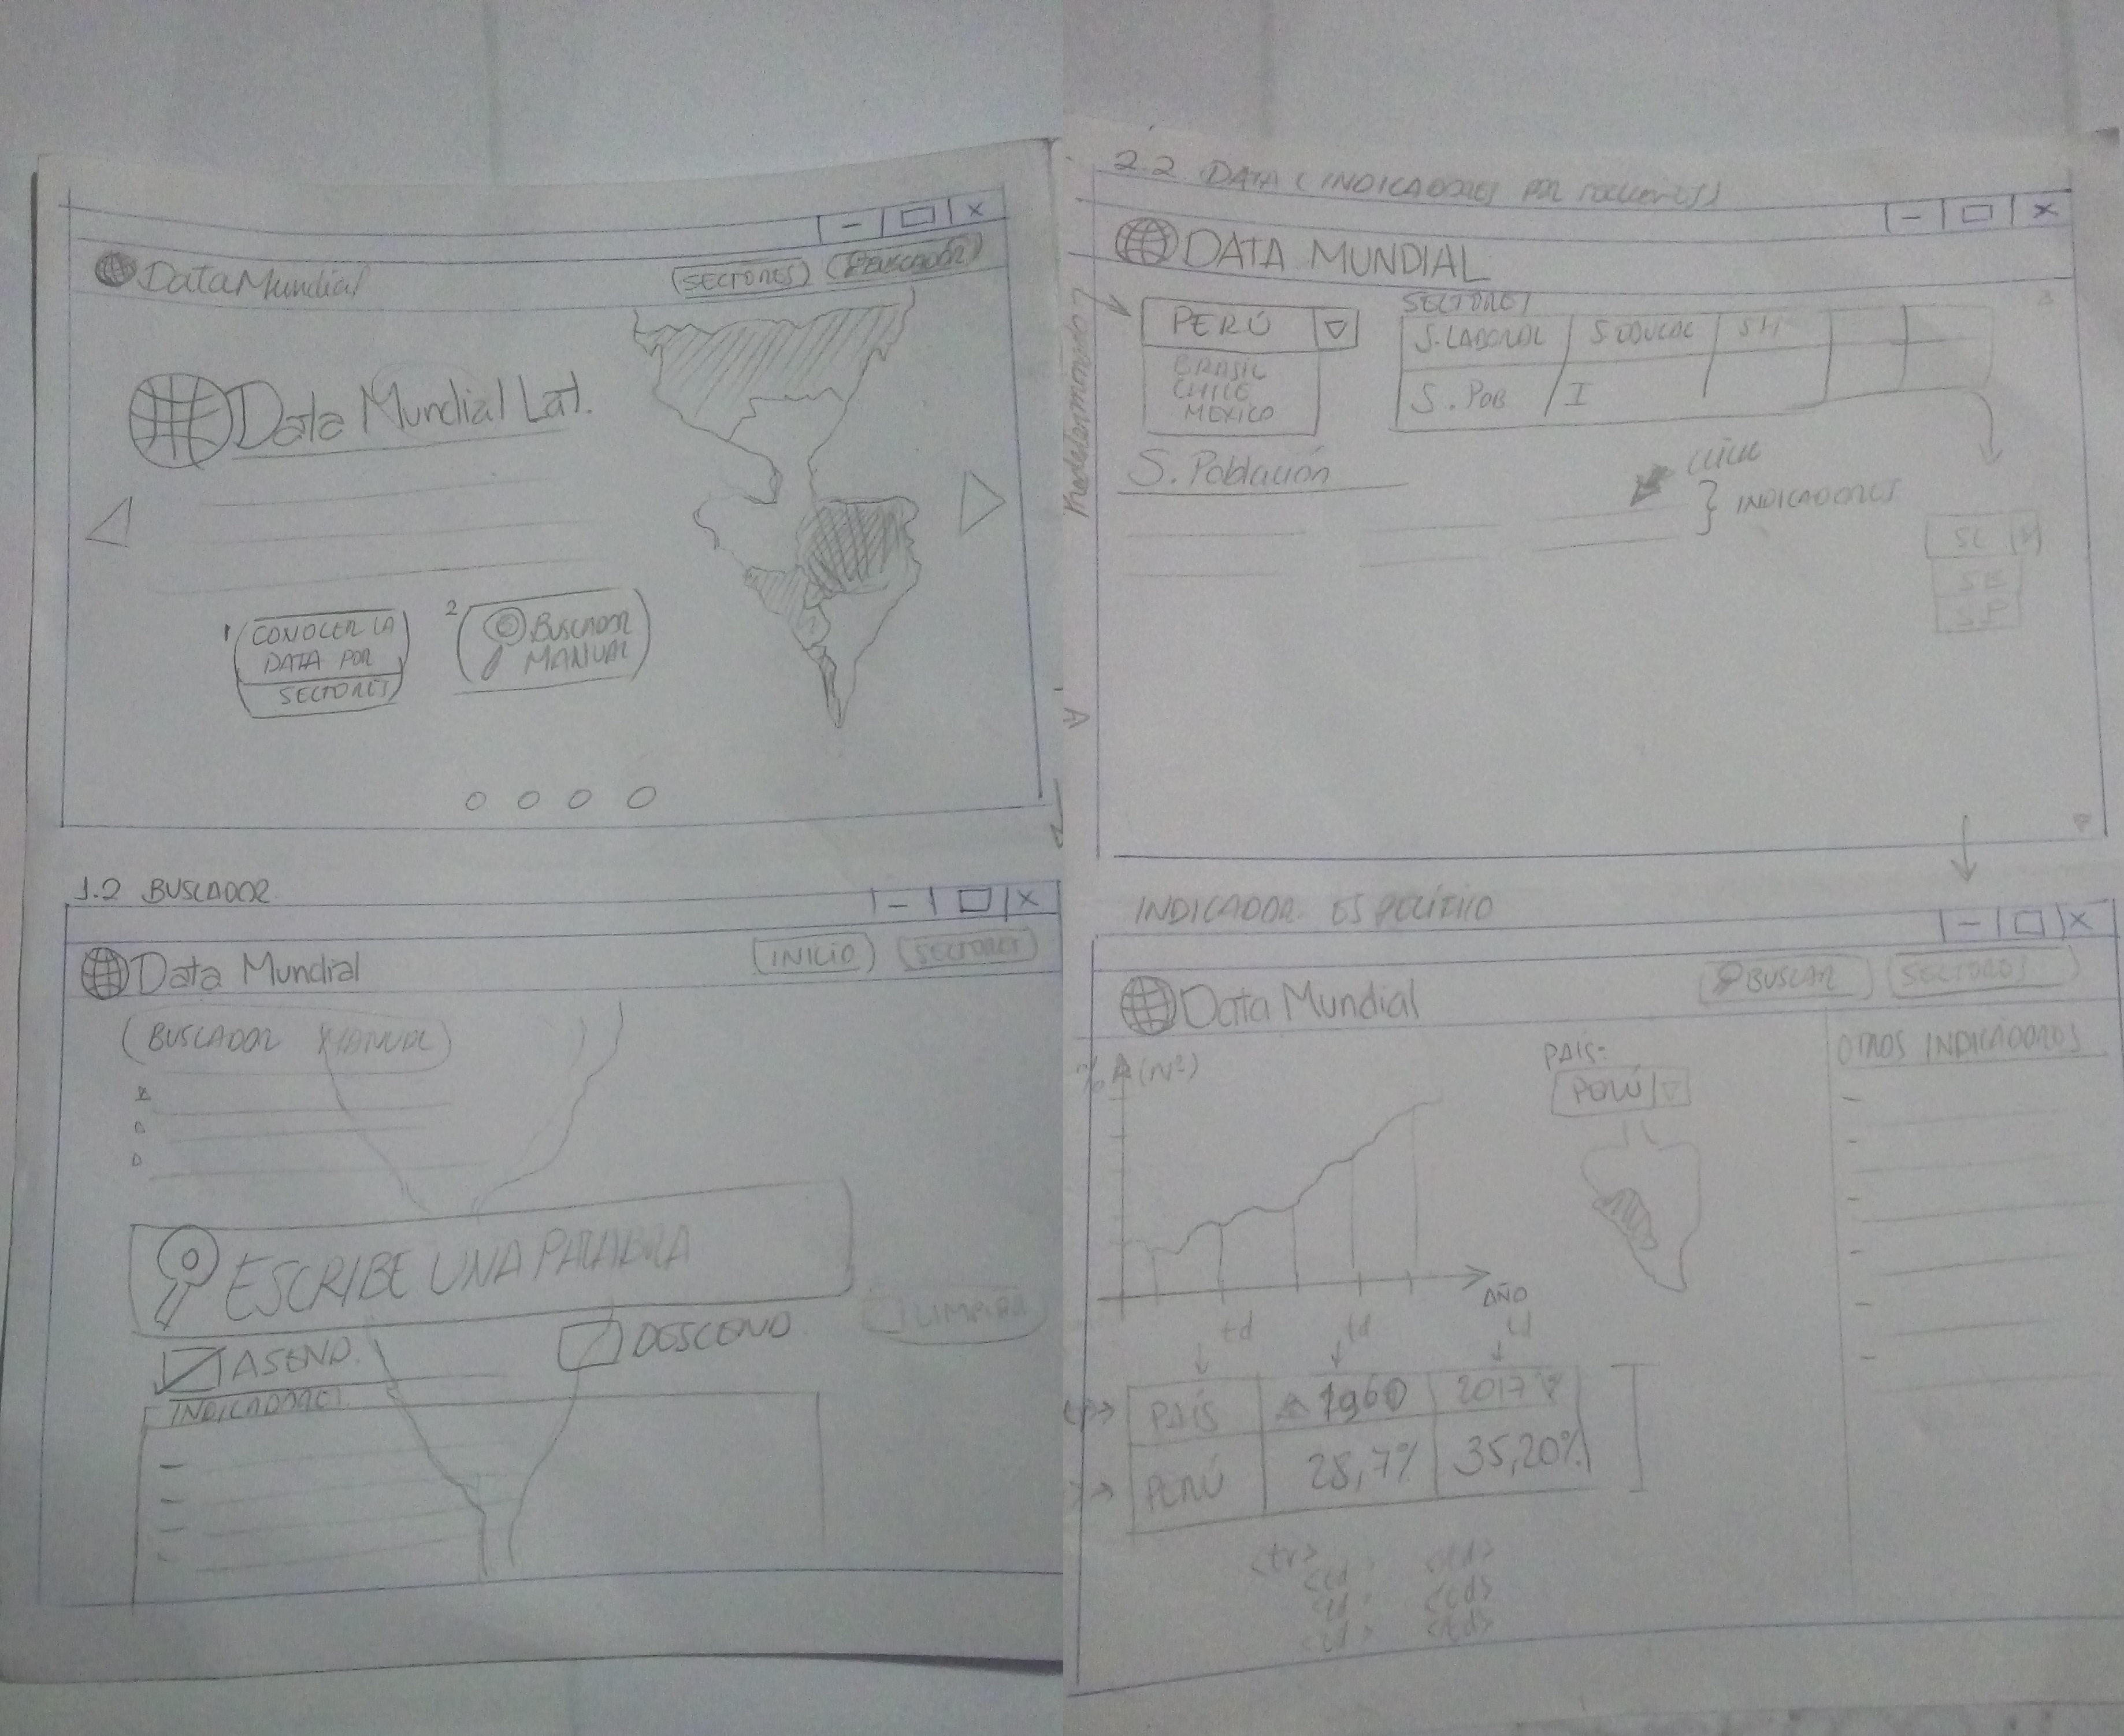 DataMundial
SECTORES
BUSCADOR
Data Mundial Lat.
1
CONOCER LA
DATA POR
SECTORES
2
BUSCADOR
MANUAL
1.2 BUSCADOR
Data Mundial
INICIO
SECTORES
BUSCADOR MANUAL
ESCRIBE UNA PALABRA
LIMPIAR
ASEND.
DESCEND
INDICADORES
2.2 DATA (INDICADORES POR
DATA MUNDIAL
PERÚ
BRASIL
CHILE
MEXICO
SECTORES
S.LABORAL
S.EDUCAC
S. POB
I
S. Población
CLICK
INDICADORES
SL
SE
SP
INDICADOR ESPECÍFICO
Data Mundial
BUSCAR
SECTORES
% (Nº)
PAÍS:
PERÚ
OTROS INDICADORES
AÑO
td
td
td
PAÍS
1960
2017
PERÚ
28,7%
35,20%
<tr>
<td>
<td>
<td>